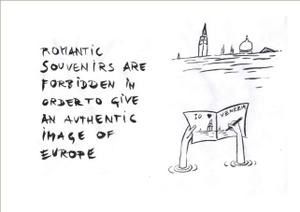 ROMANTIC
SOUVENIRS ARE
FORBIDDEN IN
ORDER TO GIVE
AN AUTHENTIC
IMAGE OF
EUROPE
IO ♥ VENEZIA